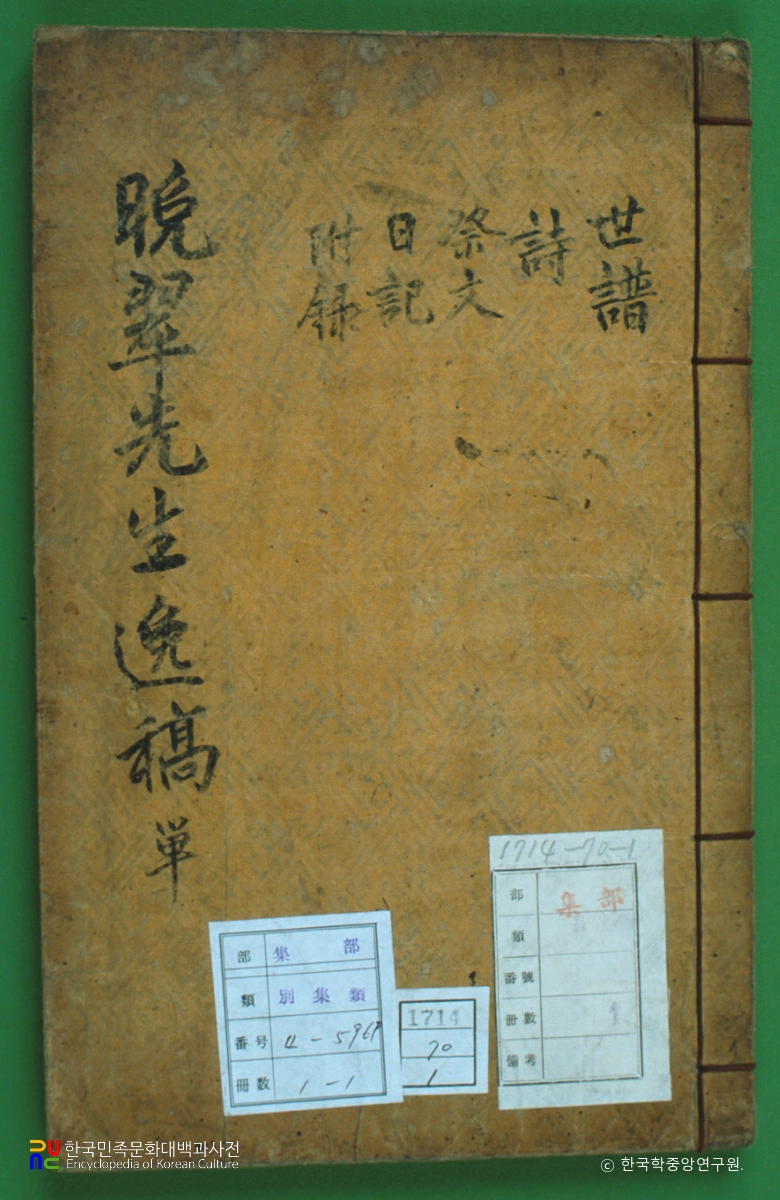 世譜
詩
祭文
日記
附錄
晚翠先生逸稿 単
1714-70-1
部 集部
類
番號
冊數 1
備考
部 集部
類 別集類
番号 4-5967
冊數 1-1
1714
70
1
한국민족문화대백과사전
Encyclopedia of Korean Culture
© 한국학중앙연구원.